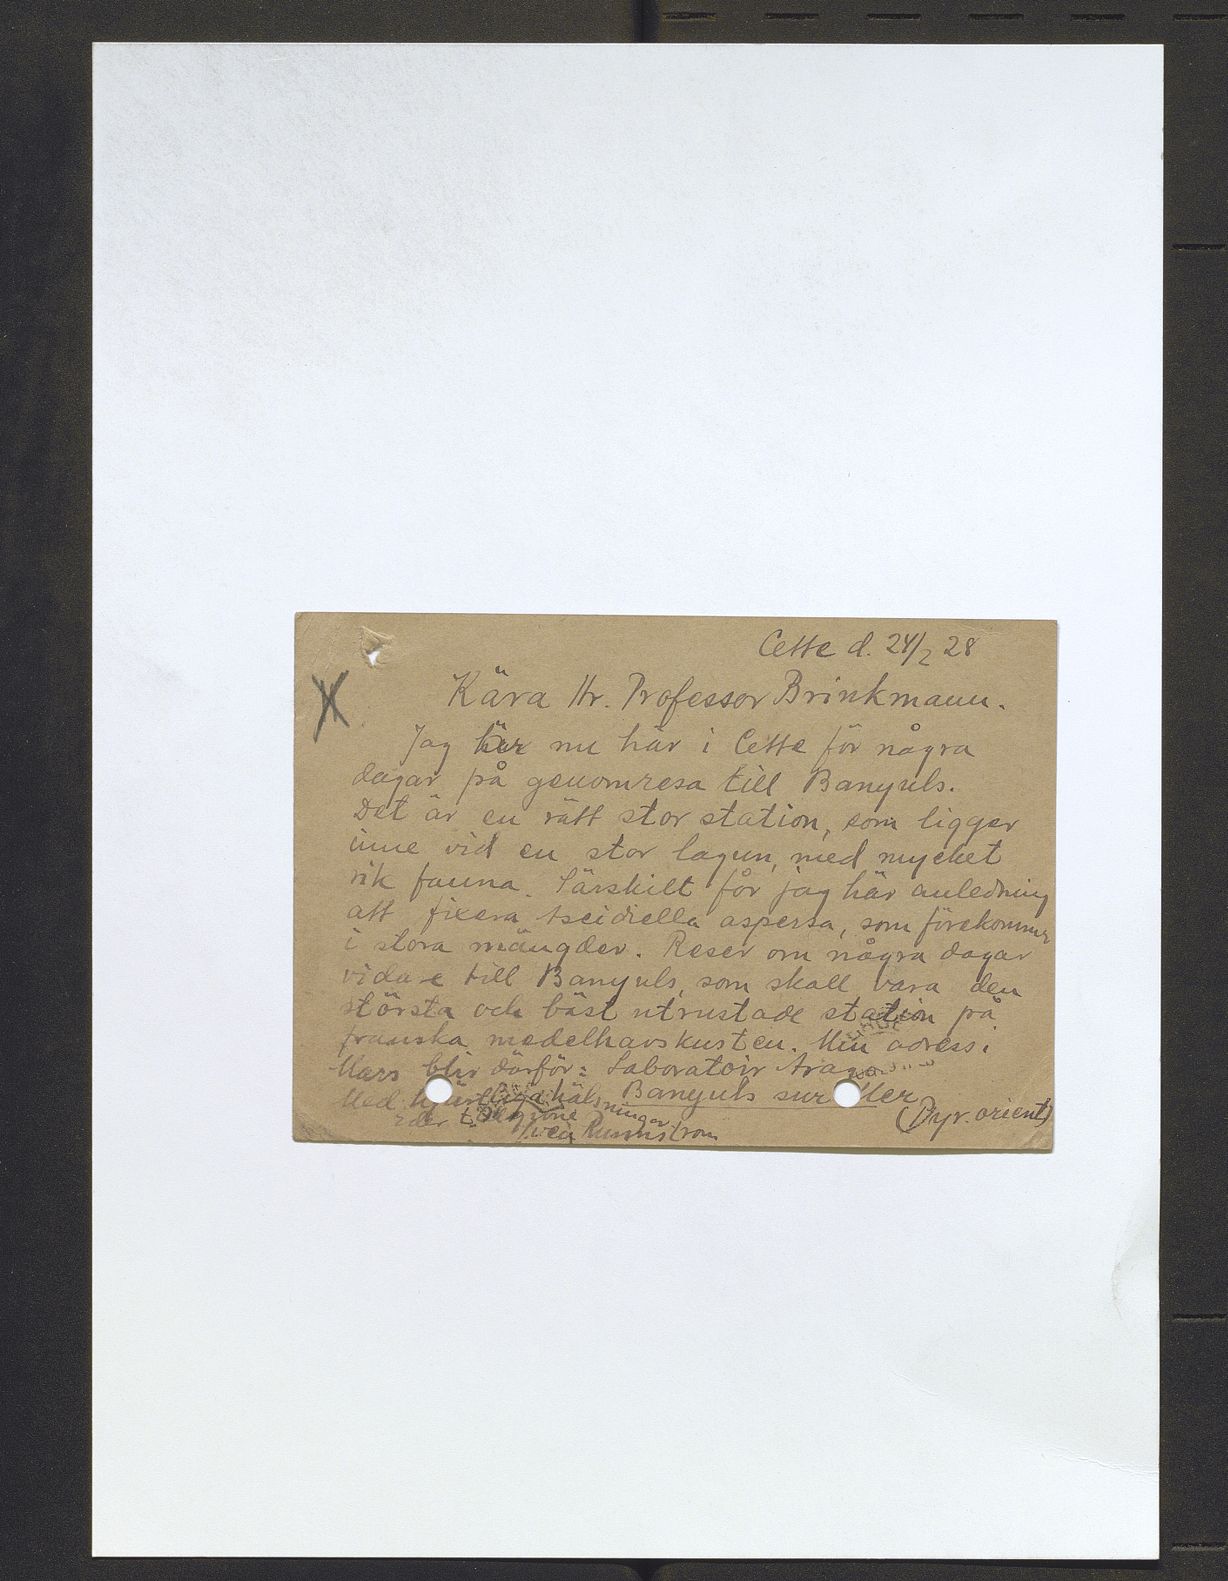 Cette d. 24/2 28
Kära Hr. Professor Brinkmann.
Jag är nu här i Cette för några
dagar på genomresa till Banyuls.
Det är en rätt stor station, som ligger
inne vid en stor lagun, med mycket
rik fauna. Särskilt får jag här anledning
att fixera Ascidiella aspersa, som förekommer
i stora mängder. Reser om några dagar
vidare till Banyuls, som skall vara den
största och bäst utrustade station på
franska medelhavskusten. Min adress i
Mars blir därför: Laboratoir Arago
Med hjärtliga hälsningar Banyuls sur Mer
(Pyr. orient)
Eder tillgivne
Sven Runnström